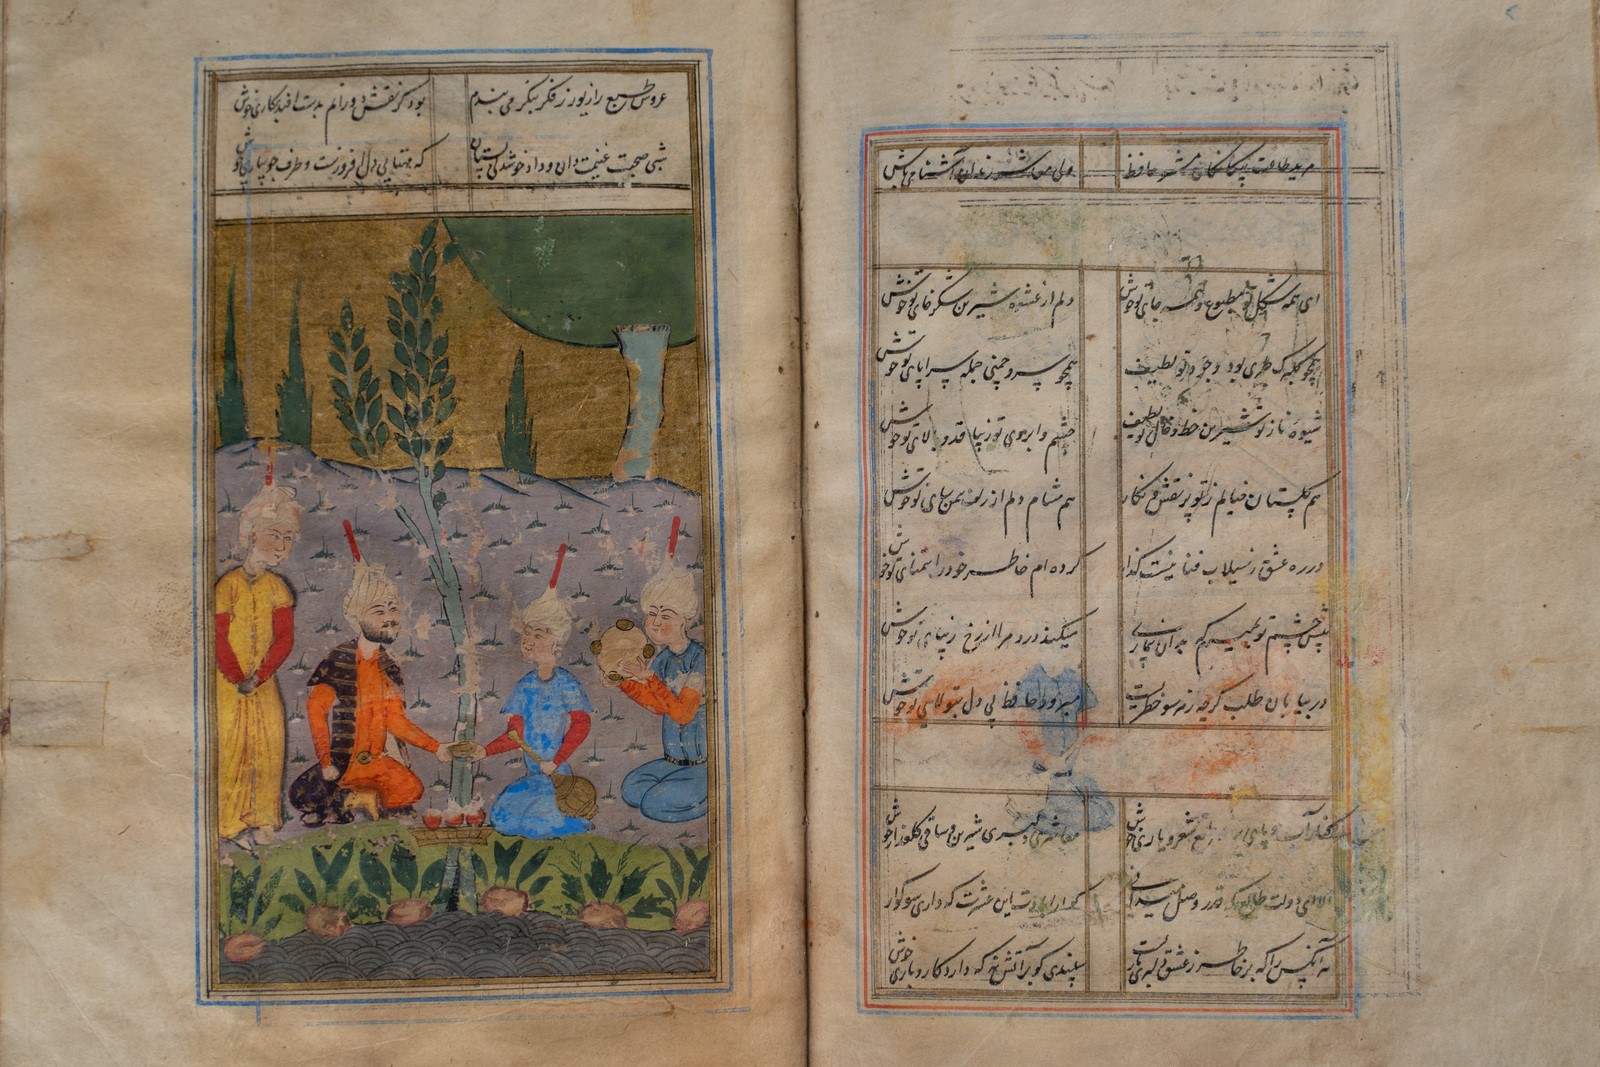 مرید طاعت بیگانگان مشو حافظ ولی معاشر رندان آشنا می باش
ای همه شکل تو مطبوع و همه جای تو خوش دلم از عشوه شیرین شکرخای تو خوش
همچو گلبرگ طری بود وجود تو لطیف همچو سرو چمنی جمله سراپای تو خوش
شیوه ناز تو شیرین خط و خال تو لطیف چشم و ابروی تو زیبا قد و بالای تو خوش
هم گلستان خیالم ز تو پر نقش و نگار هم مشام دلم از زلف سمن سای تو خوش
در ره عشق ز سیلاب فنا نیست گذار کرده ام خاطر خود را بتمنای تو خوش
پیش چشم تو بمیرم که بدان بیماری میکند درد مرا از رخ زیبای تو خوش
در بیابان طلب گرچه ز هر سو خطریست میرود حافظ بی دل بتولای تو خوش
کنار آب و پای بید و طبع شعر و یاری خوش معاشر دلبری شیرین و ساقی گلعذاری خوش
الا ای دولت طالع که قدر وصل میدانی گوارا بادت این عشرت که داری
هر آنکس را که بر خاطر ز عشق دلبری باریست سپندی گو بر آتش نه که دارد کار و باری خوش
عروس طبع را زیور ز فکر بکر می بندم بود کز نقش دورانم بدست افتد نگاری خوش
شب صحبت غنیمت دان و داد خوشدلی بستان که مهتابی دل افروزست و طرف جویباری خوش